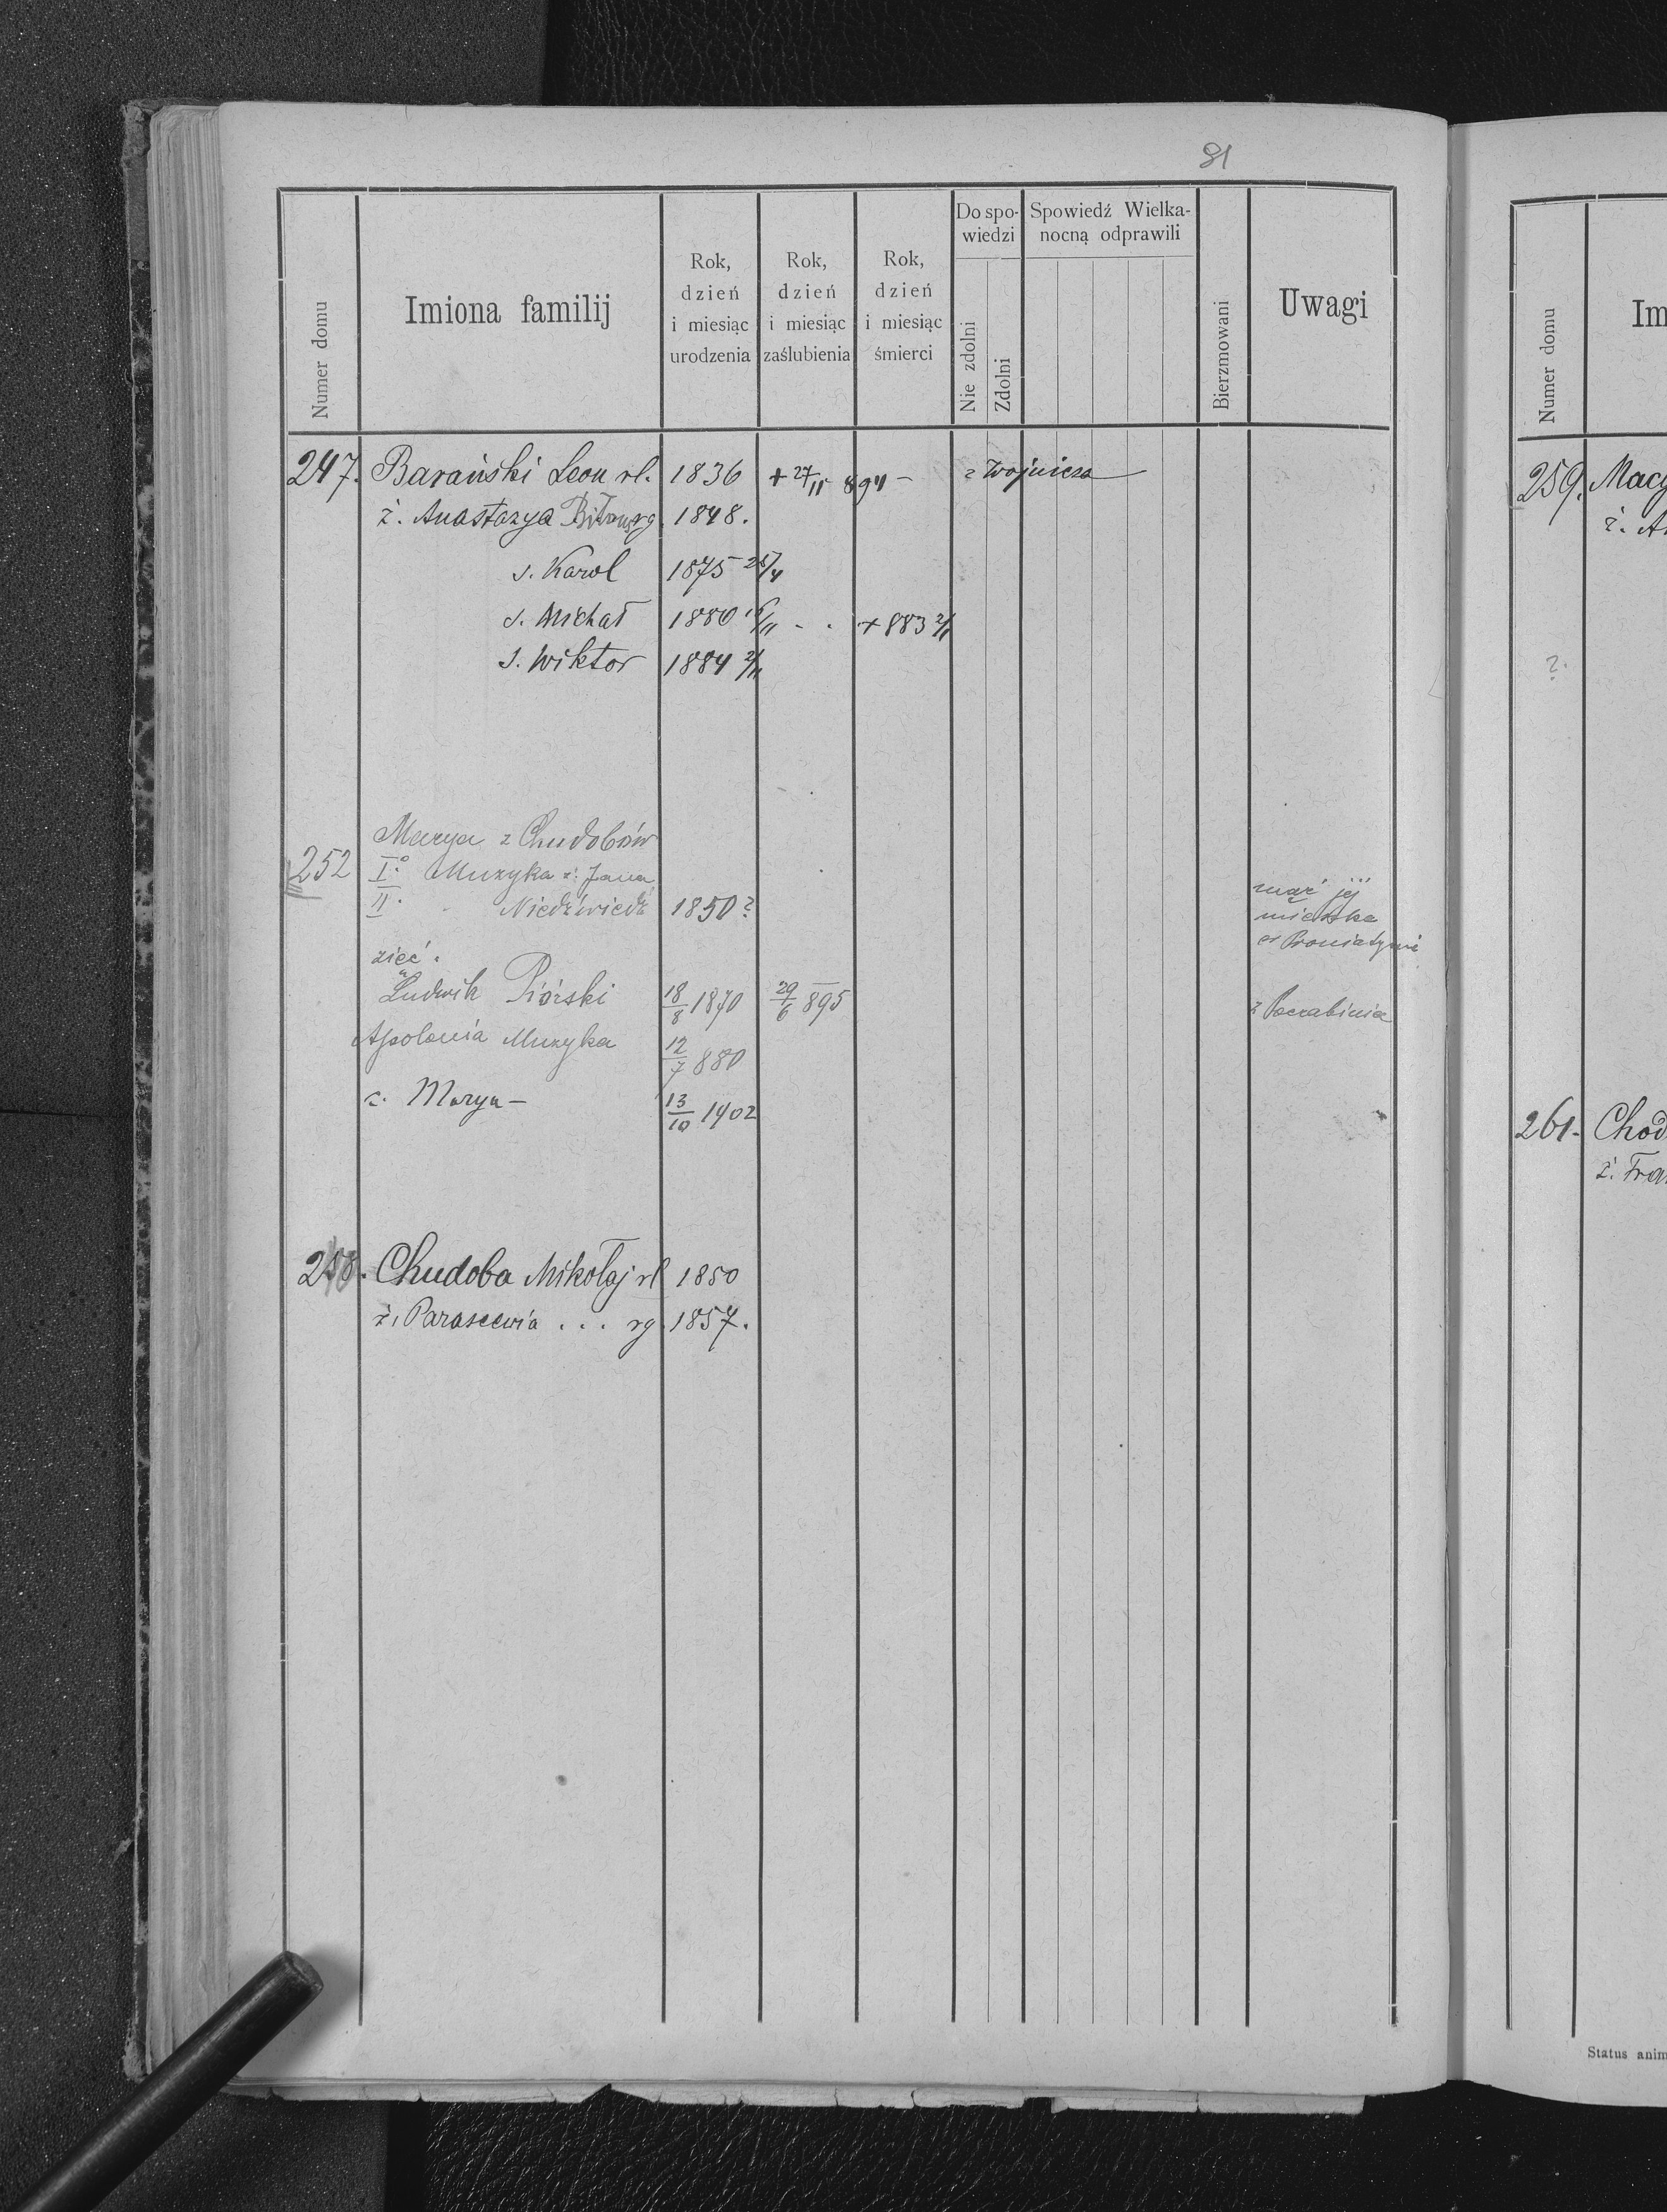 81
Numer domu
Imiona familij
Rok, dzień i miesiąc urodzenia
Rok, dzień i miesiąc zaślubienia
Rok, dzień i miesiąc śmierci
Do spowiedzi
Nie zdolni
Zdolni
Spowiedź Wielkanocną odprawili
Bierzmowani
Uwagi
247. Barański Leon rl. 1836 + 27/11 894 - z Wojnicza
ż. Anastazya rg. 1848.
s. Karol 1875 25/4
s. Michał 1880 /11 - . + 883
s. Wiktor 1884 2/11
Marya z Chudobów
252 I.° Muzyka ż. Jana
II. Niedźwiedź 1850? mąż jej
mieszka
w Proniatynie
zięć.
Ludwik Piórski 18/8 1870 29/6 895
Apolonia Muzyka 12/7 880
c. Marya - 13/10 1902
Chudoba Mikołaj rl 1850
ż. Parascewia . . . rg. 1857.
Numer domu
Im
259. Mac
ż. A
?.
261. Chod
ż. Fra
Status anim